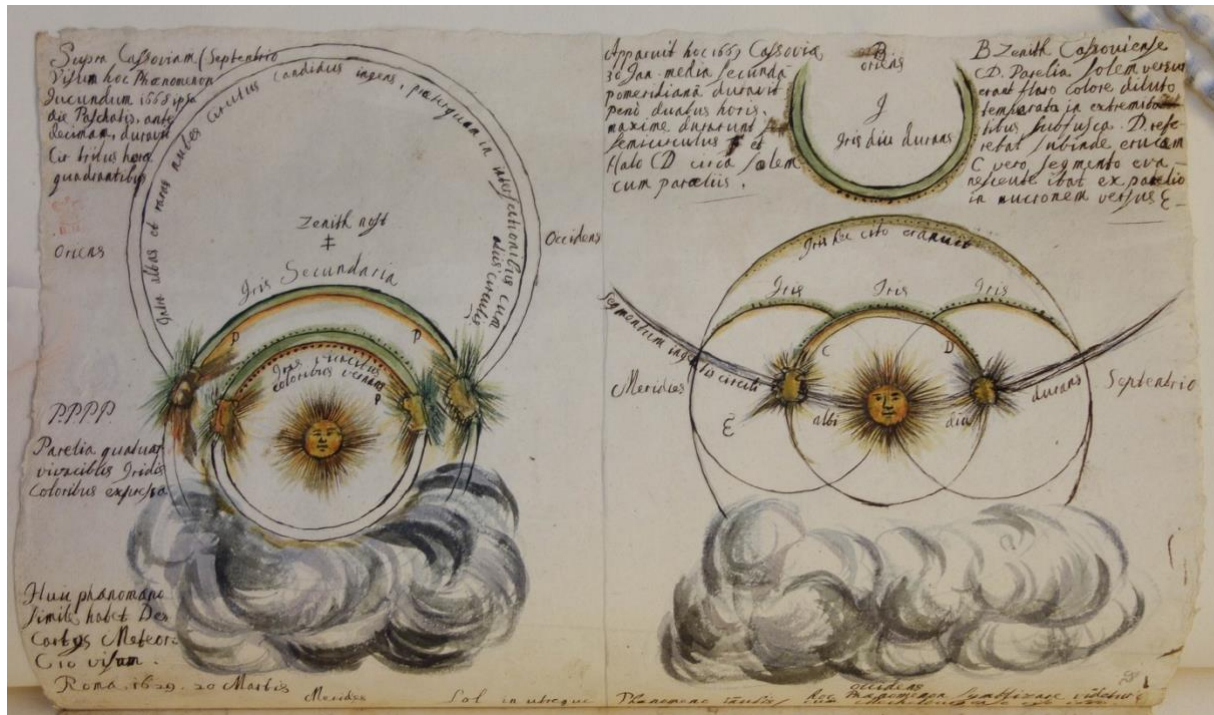 Supra Cassoviam (Septentrio
Visum hoc Phænomenon
Jucundum 1668 ipsa
die Paschatis, ante
decimam, duravit
Cir tribus horæ
quadrantibus
Intra albas et raras nubes circulus candidus ingens, præterquam in intersectionibus cum aliis circulis
Oriens
Zenith nost
Occidens
Iris Secundaria
P
P
Iris vivacibus
coloribus vernans
P
P.P.P.P.
Parelia quatuor
vivacibus Iridis
Coloribus expressa
Huic phænomeno
simile habet Des
Cartes Meteor:
C 10 visum.
Roma. 1629. 20 Martis
Merides
Sol in utroque Phænomeno
Apparuit hoc 1669 Cassoviæ
30 Jan. media secunda
pomeridiana duravit
penè duabus horis,
maxime durarunt
semicirculus et
Halo CD circa solem
cum pareliis.
B
oriens
J
Iris diu durans
B Zenith Cassoviense
CD. Parelia solem versus
erant flavo colore diluto
temperata in extremitatibus
subfusca. D. refe-
rebat subinde crucem
C vero segmento eva-
nescente ibat ex parelio
in mucronem versus E
Iris hæc cito evanuit
Iris
Iris
Iris
segmentum ingentis circuli
albi
diu
durans
C
D
E
Merides
Septentrio
occidens
hoc Phænomenon symbolizare videtur